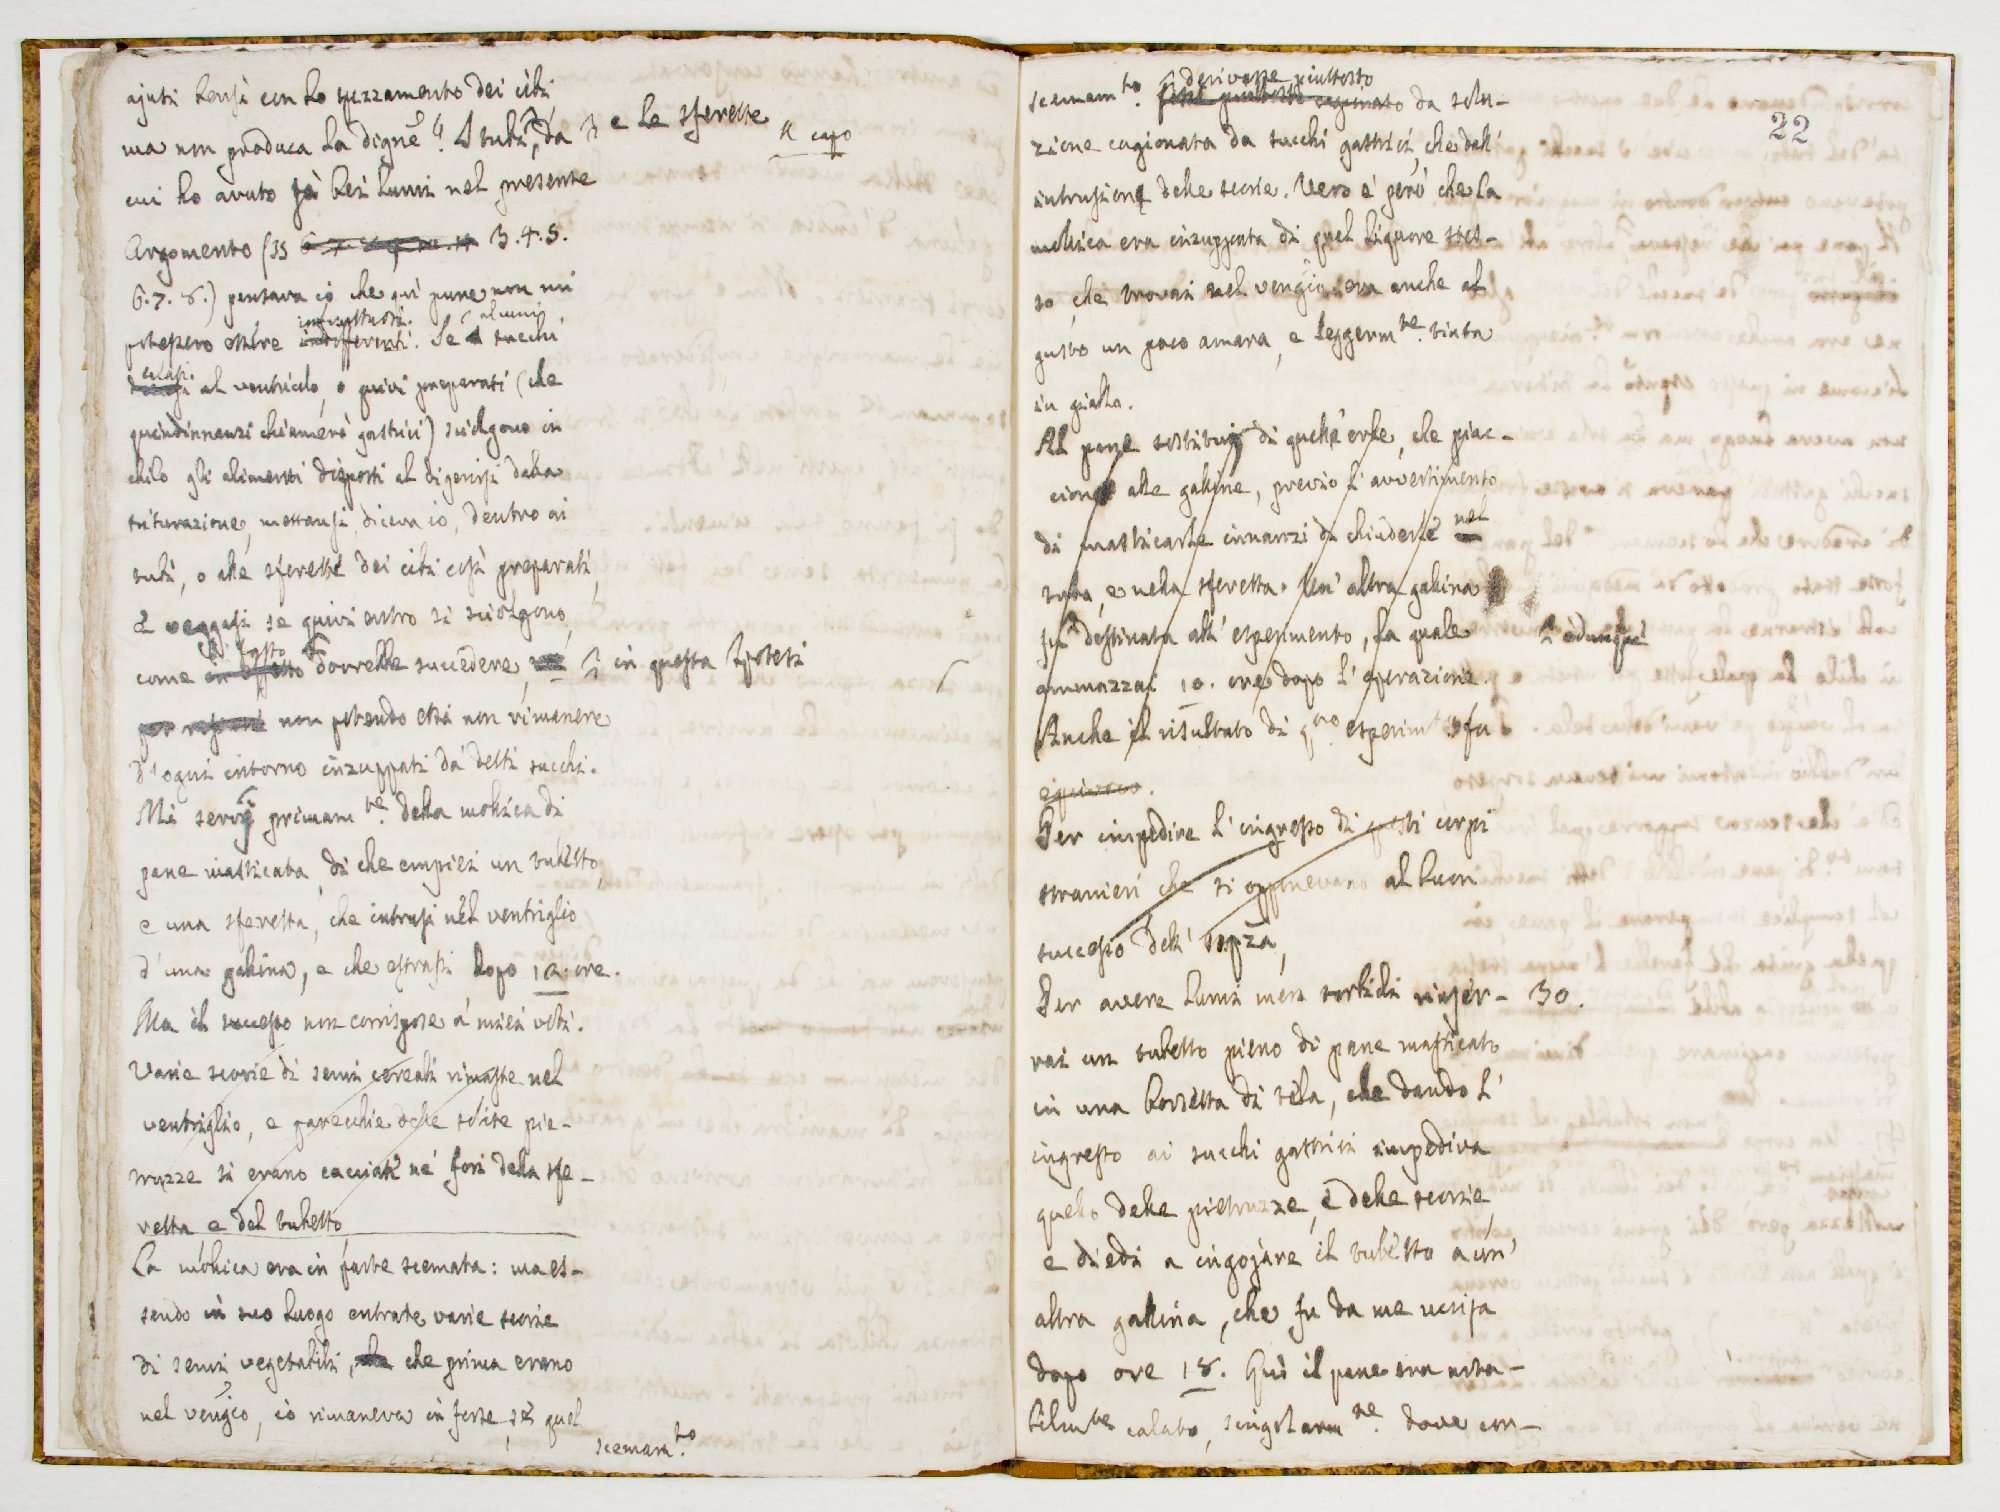 ajuti bensì con lo spezzamento dei cibi
ma non produca la digne. I tubi, da e le sferette
A capo
cui ho avuto già bei lumi nel presente
Argomento (§§ 3.4.5.
6.7.8.) pensava io che quì pure non mi
infruttuosi. alcuni
potessero essere indifferenti. Se i succhi
colati
al ventricolo, o quivi preparati (che
quindinnanzi chiamerò gastrici) sciolgono in
chilo gli alimenti disposti al digerirsi dalla
triturazione, mettansi, diceva io, dentro ai
tubi, o alle sferette dei cibi così preparati,
e veggasi se quivi entro si sciolgono,
di fatto
come in effetto dovrebbe succedere, in questa Ipotesi
non potendo essi non rimanere
d'ogni intorno inzuppati da detti succhi.
Mi servj primamte. della mollica di
pane masticata, di che empiei un tubetto,
e una sferetta, che intrusi nel ventriglio
d'una gallina, e che estrassi dopo 12. ore.
Ma il successo non corrispose a' miei voti.
Varie scorie di semi cereali rimaste nel
ventriglio, e parecchie delle solite pie-
truzze si erano cacciate ne' fori della sfe-
retta e del tubetto
La mollica era in parte scemata: ma es-
sendo in suo luogo entrate varie scorie
di semi vegetabili, che che prima erano
nel vengio, io rimaneva in forse, se quel
scemam.to
22
derivasse piuttosto
scemam.to fosse piuttosto cagionato da solu-
zione cagionata da succhi gastrici, che dall'
intrusione delle scorie. Vero è però che la
mollica era inzuppata di quel liquore stes-
so, che trovasi nel vengio, era anche al
gusto un poco amara, e leggermte. tinta
in giallo.
Al pane sostituj di quelle erbe, che piac-
ciono alle galline, previo l'avvertimento
di masticarle innanzi di chiuderle nel
tubo, e nella sferetta. Un' altra gallina
fu destinata all' esperimento, la quale
ammazzai 10. ore dopo l'operazione.
Anche il risultato di esperim fu
equivoco.
Per impedire l'ingresso di questi corpi
stranieri che si opponevano al buon
successo dell'
Per avere lumi men torbidi inser- 30.
rai un tubetto pieno di pane masticato
in una borsetta di tela, che dando l'
ingresso ai succhi gastrici impediva
quello delle pietruzze, e delle scorie
e diedi a ingojare il tubetto a un'
altra gallina, che fu da me uccisa
dopo ore 18. Quì il pane era nota-
bilmte calato, singolarmte. dove con-